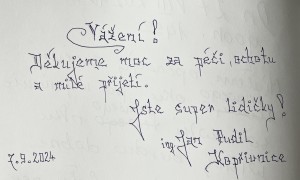 Vážení!
Děkujeme moc za péči, ochotu
a milé přijetí.
Jste super lidičky!
ing Jan Pudil
7.9.2024 Kopřivnice